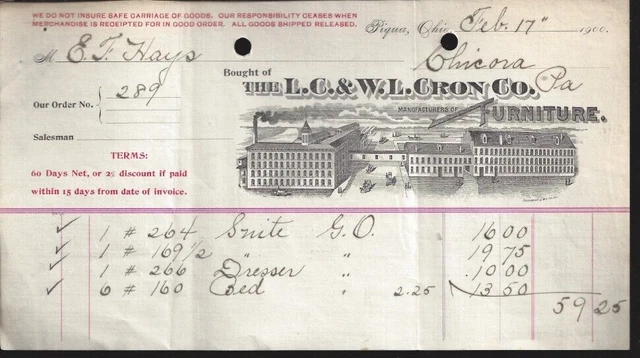 WE DO NOT INSURE SAFE CARRIAGE OF GOODS. OUR RESPONSIBILITY CEASES WHEN
MERCHANDISE IS RECEIPTED FOR IN GOOD ORDER. ALL GOODS SHIPPED RELEASED.
Piqua, Ohio, Feb. 17" 1900.
M E. F. Hays Chicora Pa
Bought of
THE L.C. & W.L. CRON CO.
MANUFACTURERS OF FURNITURE.
Our Order No. 289
Salesman
TERMS:
60 Days Net, or 2% discount if paid
within 15 days from date of invoice.
1 # 264 Suite G.O. 16 00
1 # 169 1/2 " " 19 75
1 # 266 Dresser " 10 00
6 # 160 Bed " 2.25 13 50
59 25